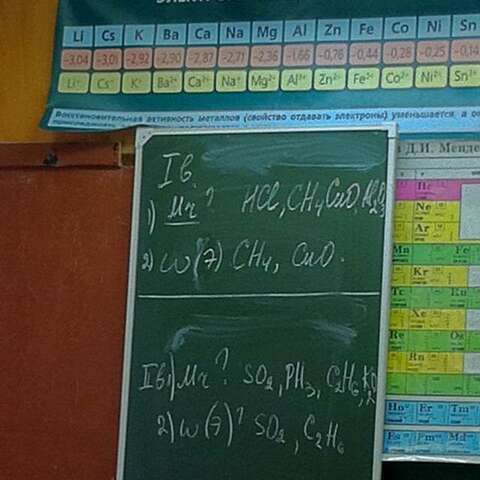 Li Cs K Ba Ca Na Mg Al Zn Fe Co Ni Sn
-3,04 -3,01 -2,92 -2,90 -2,87 -2,71 -2,36 -1,66 -0,76 -0,44 -0,28 -0,25 -0,14
Li⁺ Cs⁺ K⁺ Ba²⁺ Ca²⁺ Na⁺ Mg²⁺ Al³⁺ Zn²⁺ Fe²⁺ Co²⁺ Ni²⁺ Sn²
Восстановительная активность металлов (свойство отдавать электроны) уменьшается, а
Д.И. Менде
Iв.
1) Mr? HCl, CH₄, CuO, Al₂O₃
2) ω(%) CH₄, CuO.
IIв 1) Mr? SO₂, PH₃, C₂H₆, K₂O
2) ω(%)? SO₂, C₂H₆
He
Ne
Ar
Mn Fe
Kr
Tc Ru
Xe
Re Os
Rn
Ho Er Tm
Es Fm Md